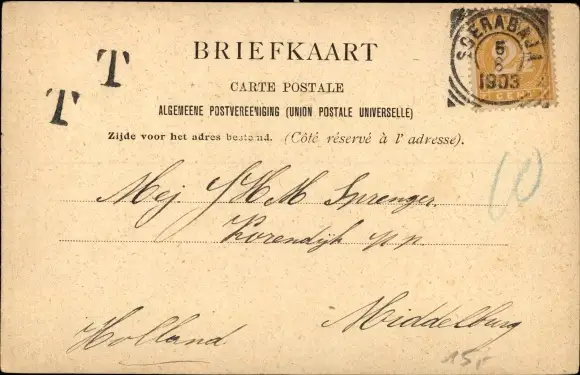 T
T
BRIEFKAART
CARTE POSTALE
ALGEMEENE POSTVEREENIGING (UNION POSTALE UNIVERSELLE)
Zijde voor het adres bestemd. (Côté réservé à l'adresse).
SOERABAJA
5
8
1903
2
CENT
10
Mej. J H M Sprenger.
Korendijk p.p.
Middelburg
Holland
15,-